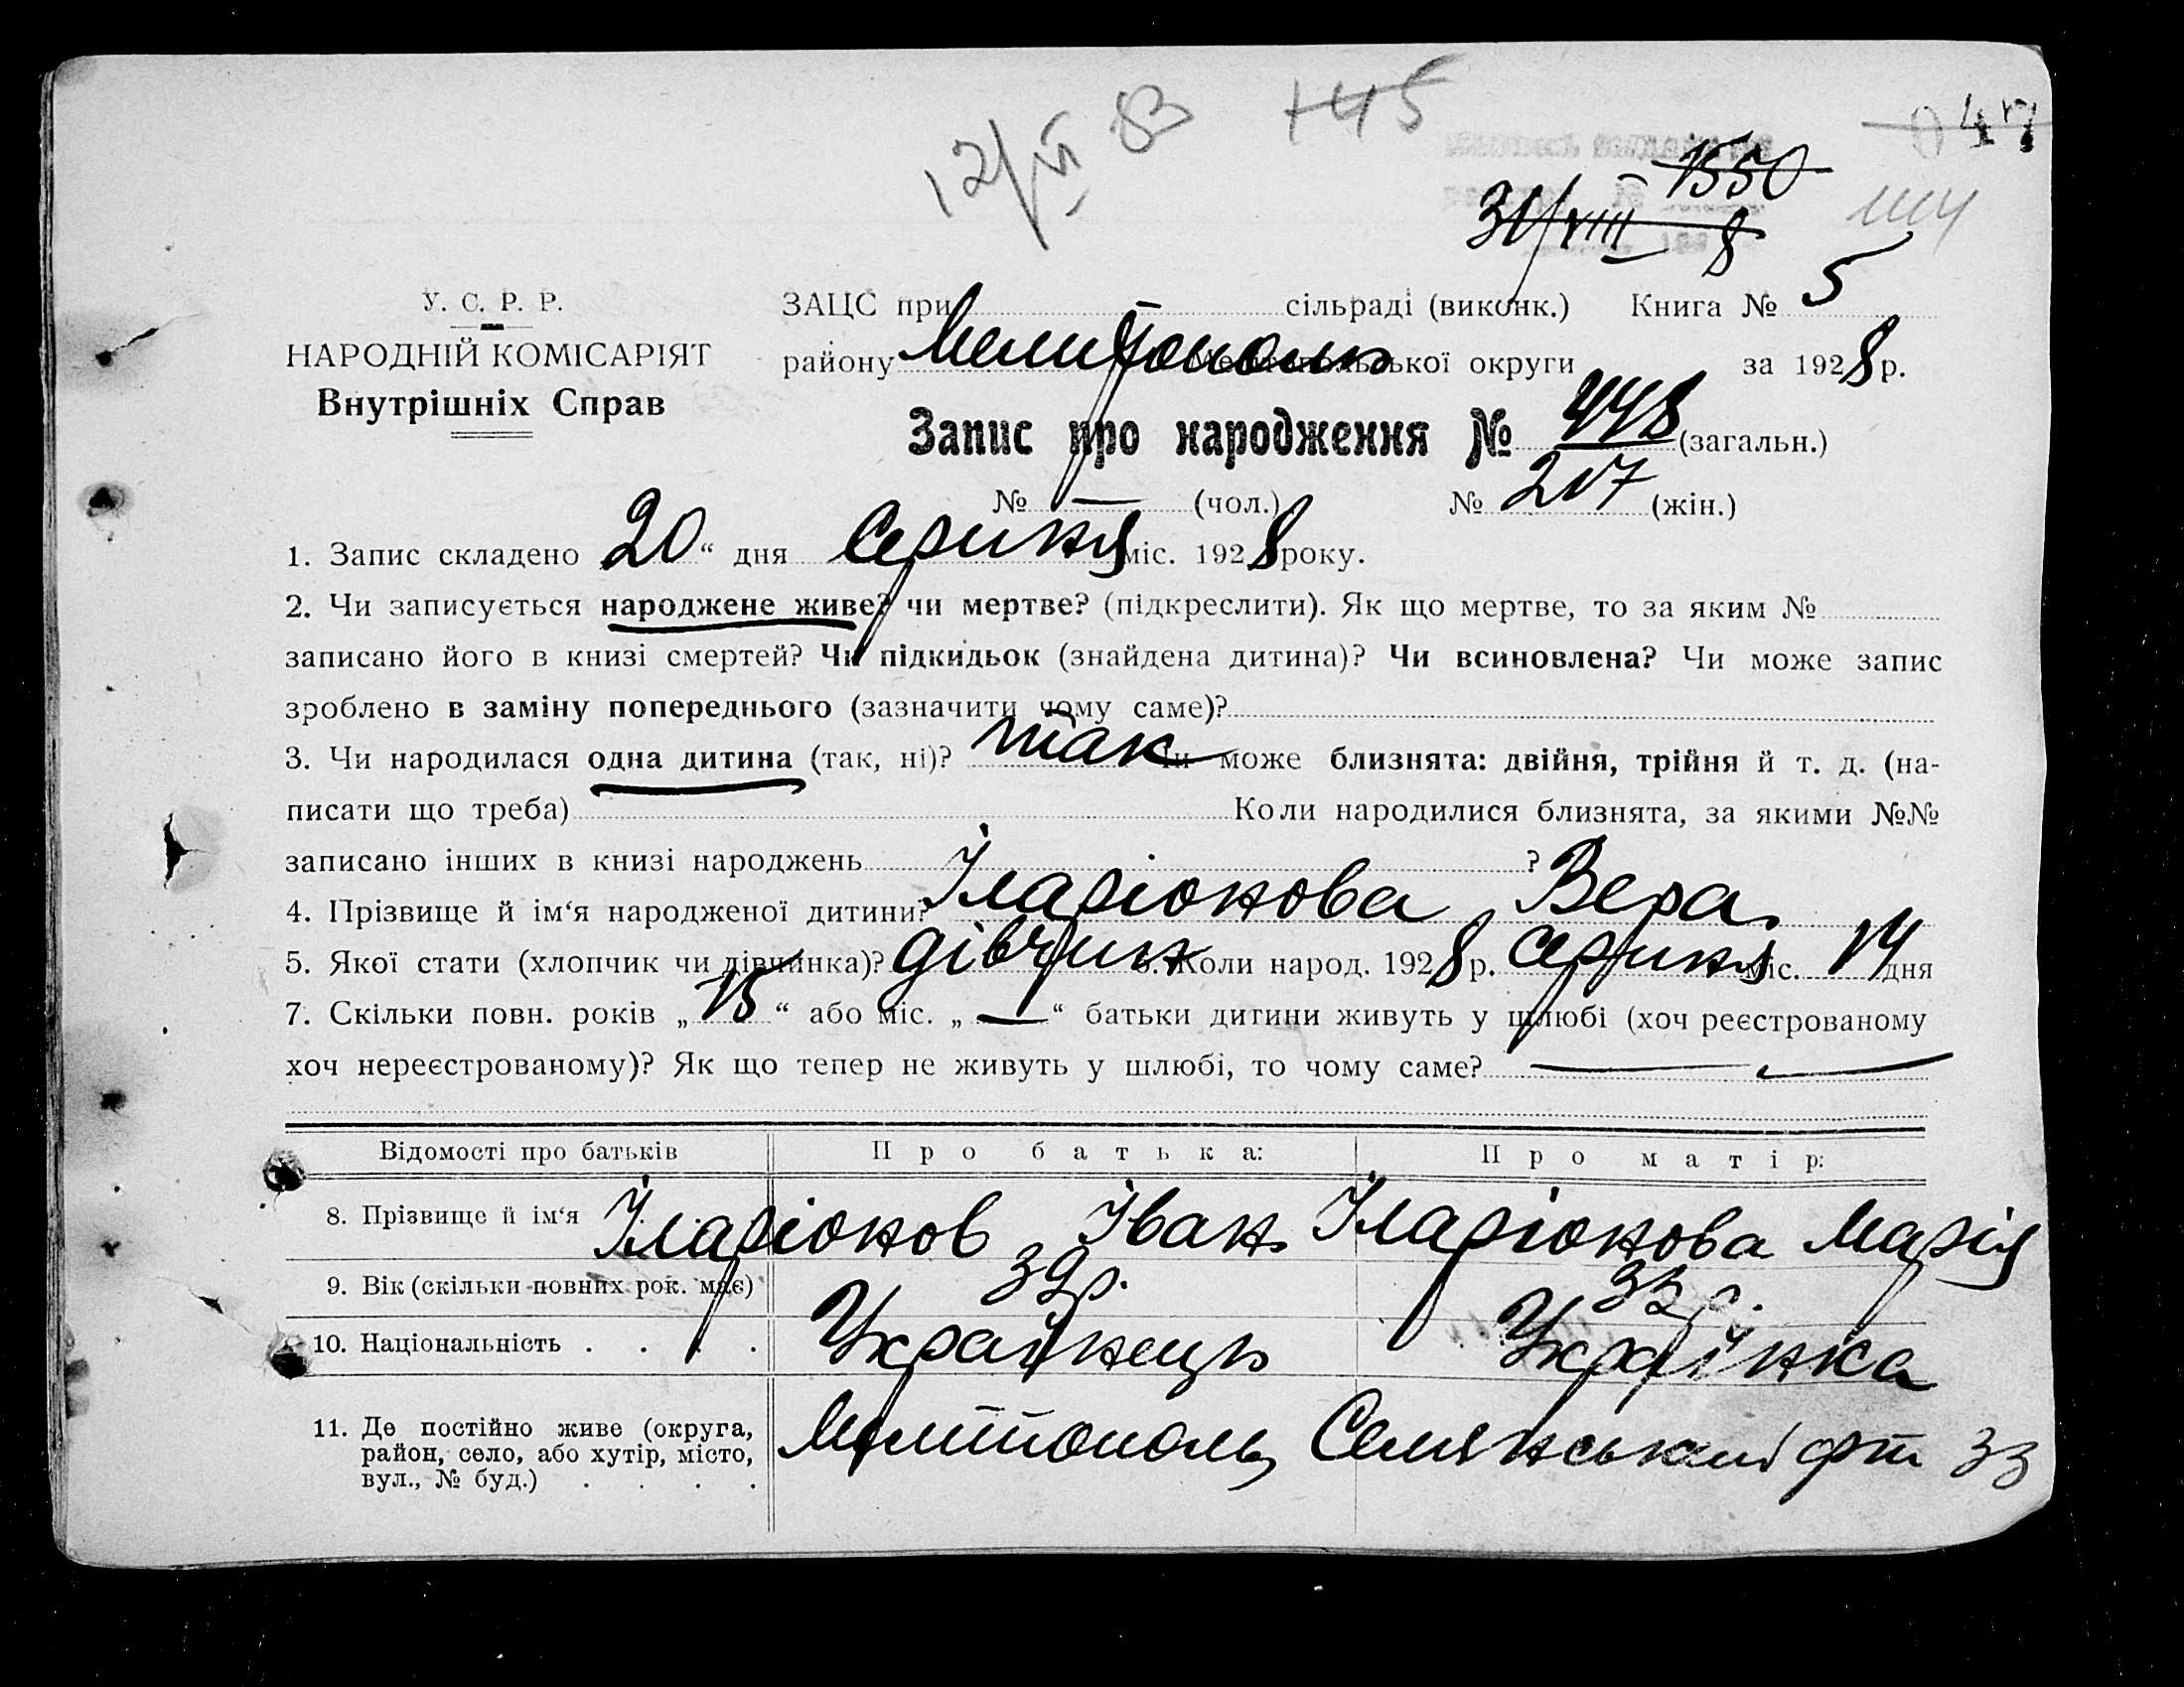 +45
47
1550
31/VIII 8
У. С. Р. Р.
НАРОДНІЙ КОМІСАРІЯТ
Внутрішніх Справ
ЗАЦС при сільраді (виконк.) Книга № 5
району Мелитополь Мелітопольської округи за 1928 р.
Запис про народження № 448 (загальн.)
№ — (чол.) № 217 (жін.)
1. Запис складено 20 “ дня Серпня міс. 1928 року.
2. Чи записується народжене живе? чи мертве? (підкреслити). Як що мертве, то за яким №
записано його в книзі смертей? Чи підкидьок (знайдена дитина)? Чи всиновлена? Чи може запис
зроблено в заміну попереднього (зазначити чому саме)?
3. Чи народилася одна дитина (так, ні)? так Чи може близнята: двійня, трійня й т. д. (на-
писати що треба) Коли народилися близнята, за якими №№
записано інших в книзі народжень ?
4. Прізвище й ім‘я народженої дитини? Іларіонова Вера
5. Якої стати (хлопчик чи дівчинка)? дівчин 6. Коли народ. 1928 р. серпня міс. 14 дня
7. Скільки повн. років „ 15 “ або міс. „ — “ батьки дитини живуть у шлюбі (хоч реєстрованому
хоч нереєстрованому)? Як що тепер не живуть у шлюбі, то чому саме? —
Відомості про батьків Про батька: Про матір:
8. Прізвище й ім‘я Іларіонов Іван Іларіонова Марія
9. Вік (скільки повних рок. має) 39р. 32 р.
10. Національність . . . . Українець Українка
11. Де постійно живе (округа,
район, село, або хутір, місто,
вул., № буд.) . . . .
Мелітополь 33